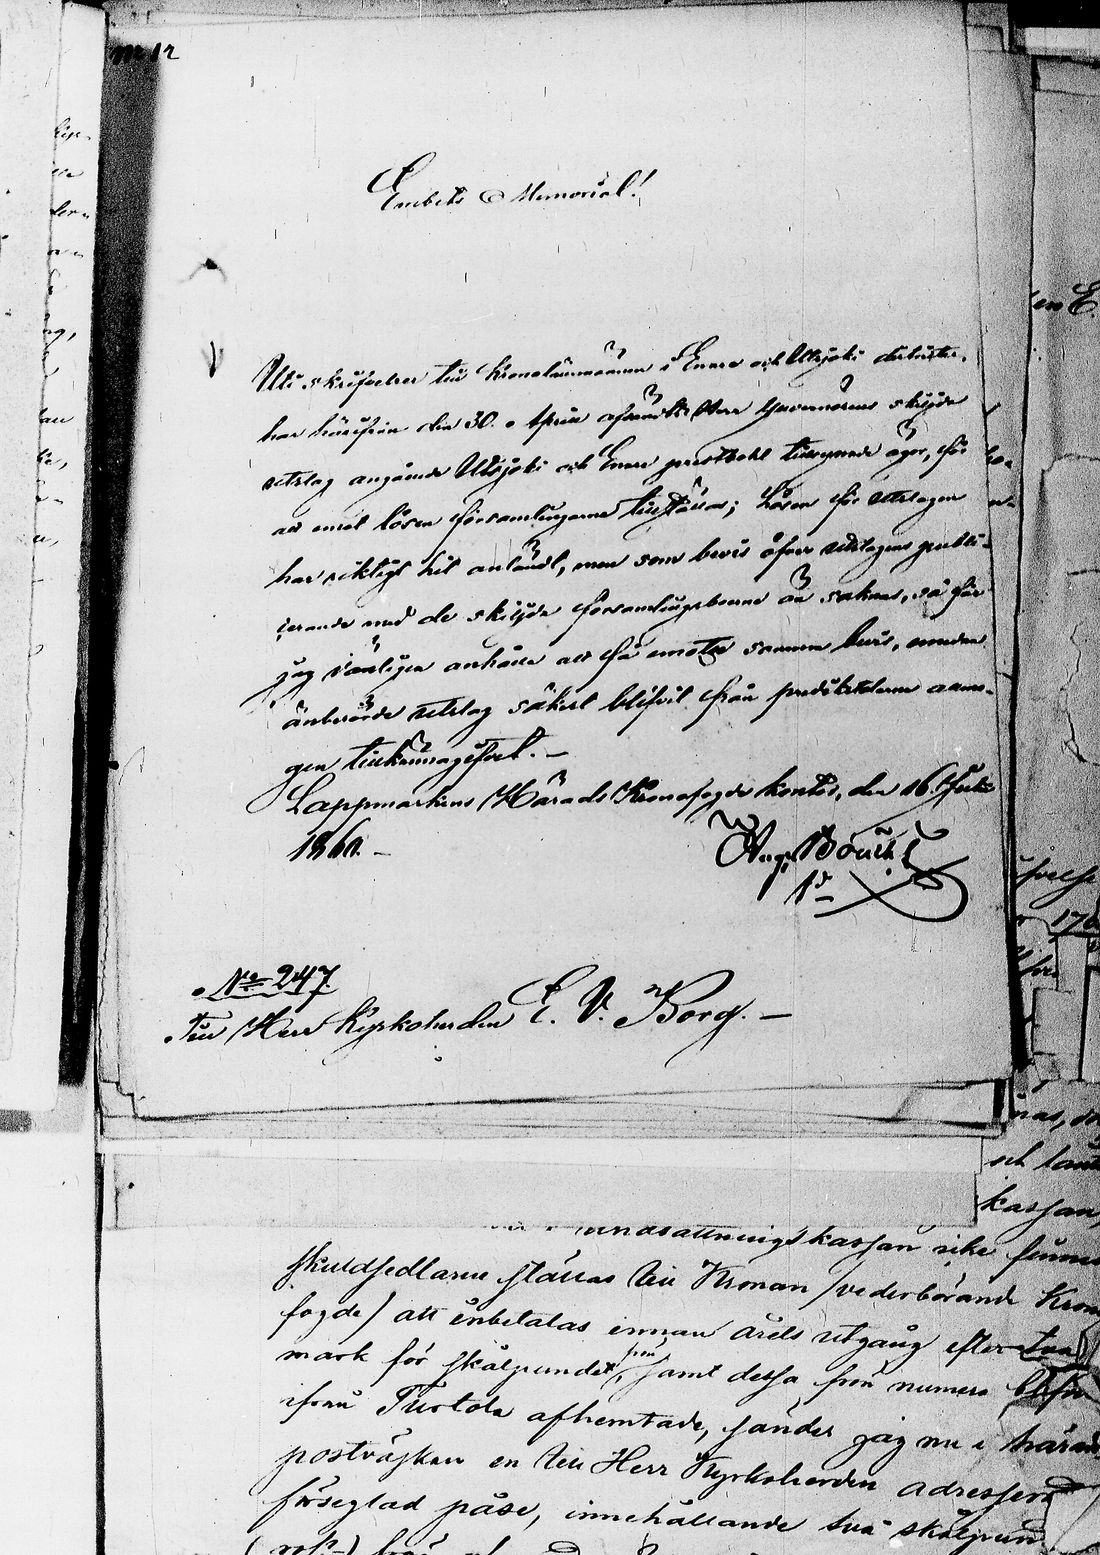 nr 12
Embets Memorial!
Uti skrifvelser till Kronolänsmannen i Enare och Utsjoki distrikter,
har härifrån den 30. April afsändts Herr Guvernörens skiljde
utslag angående Utsjoki och Enare prestbohl tillhörande ägor, för
att emot lösen församlingarne tillställas; Lösen för utslagen
har riktigt hit anländt, men som bevis öfver utslagens publi-
cerande med de skiljde församlingsboerne än saknas, så får
jag vänligen anhålla att få emottaga samma bevis, emedan
änberörde utslag säkert blifvit från predikstolarne
gen tillkännagifvet. —
Lappmarkens Härads Kronofogde kontor, den 16 Juli
1861. —
Aug. Boucht
No 247.
Till Herr Kyrkoherden E. V. Borg. —
undsättningskassan icke finnes
skuldsedlarne ställas till Kronan /vederbörande Krono
fogde/ att inbetalas innan årets utgång efter två
mark för skålpundet, samt dessa frön numera blifvit
ifrån Turtola afhemtade, sänder jag nu i härads
postväskan en till Herr Kyrkoherden adresserad
förseglad påse, innehållande två skålpund
en E.
176
och
kassan,